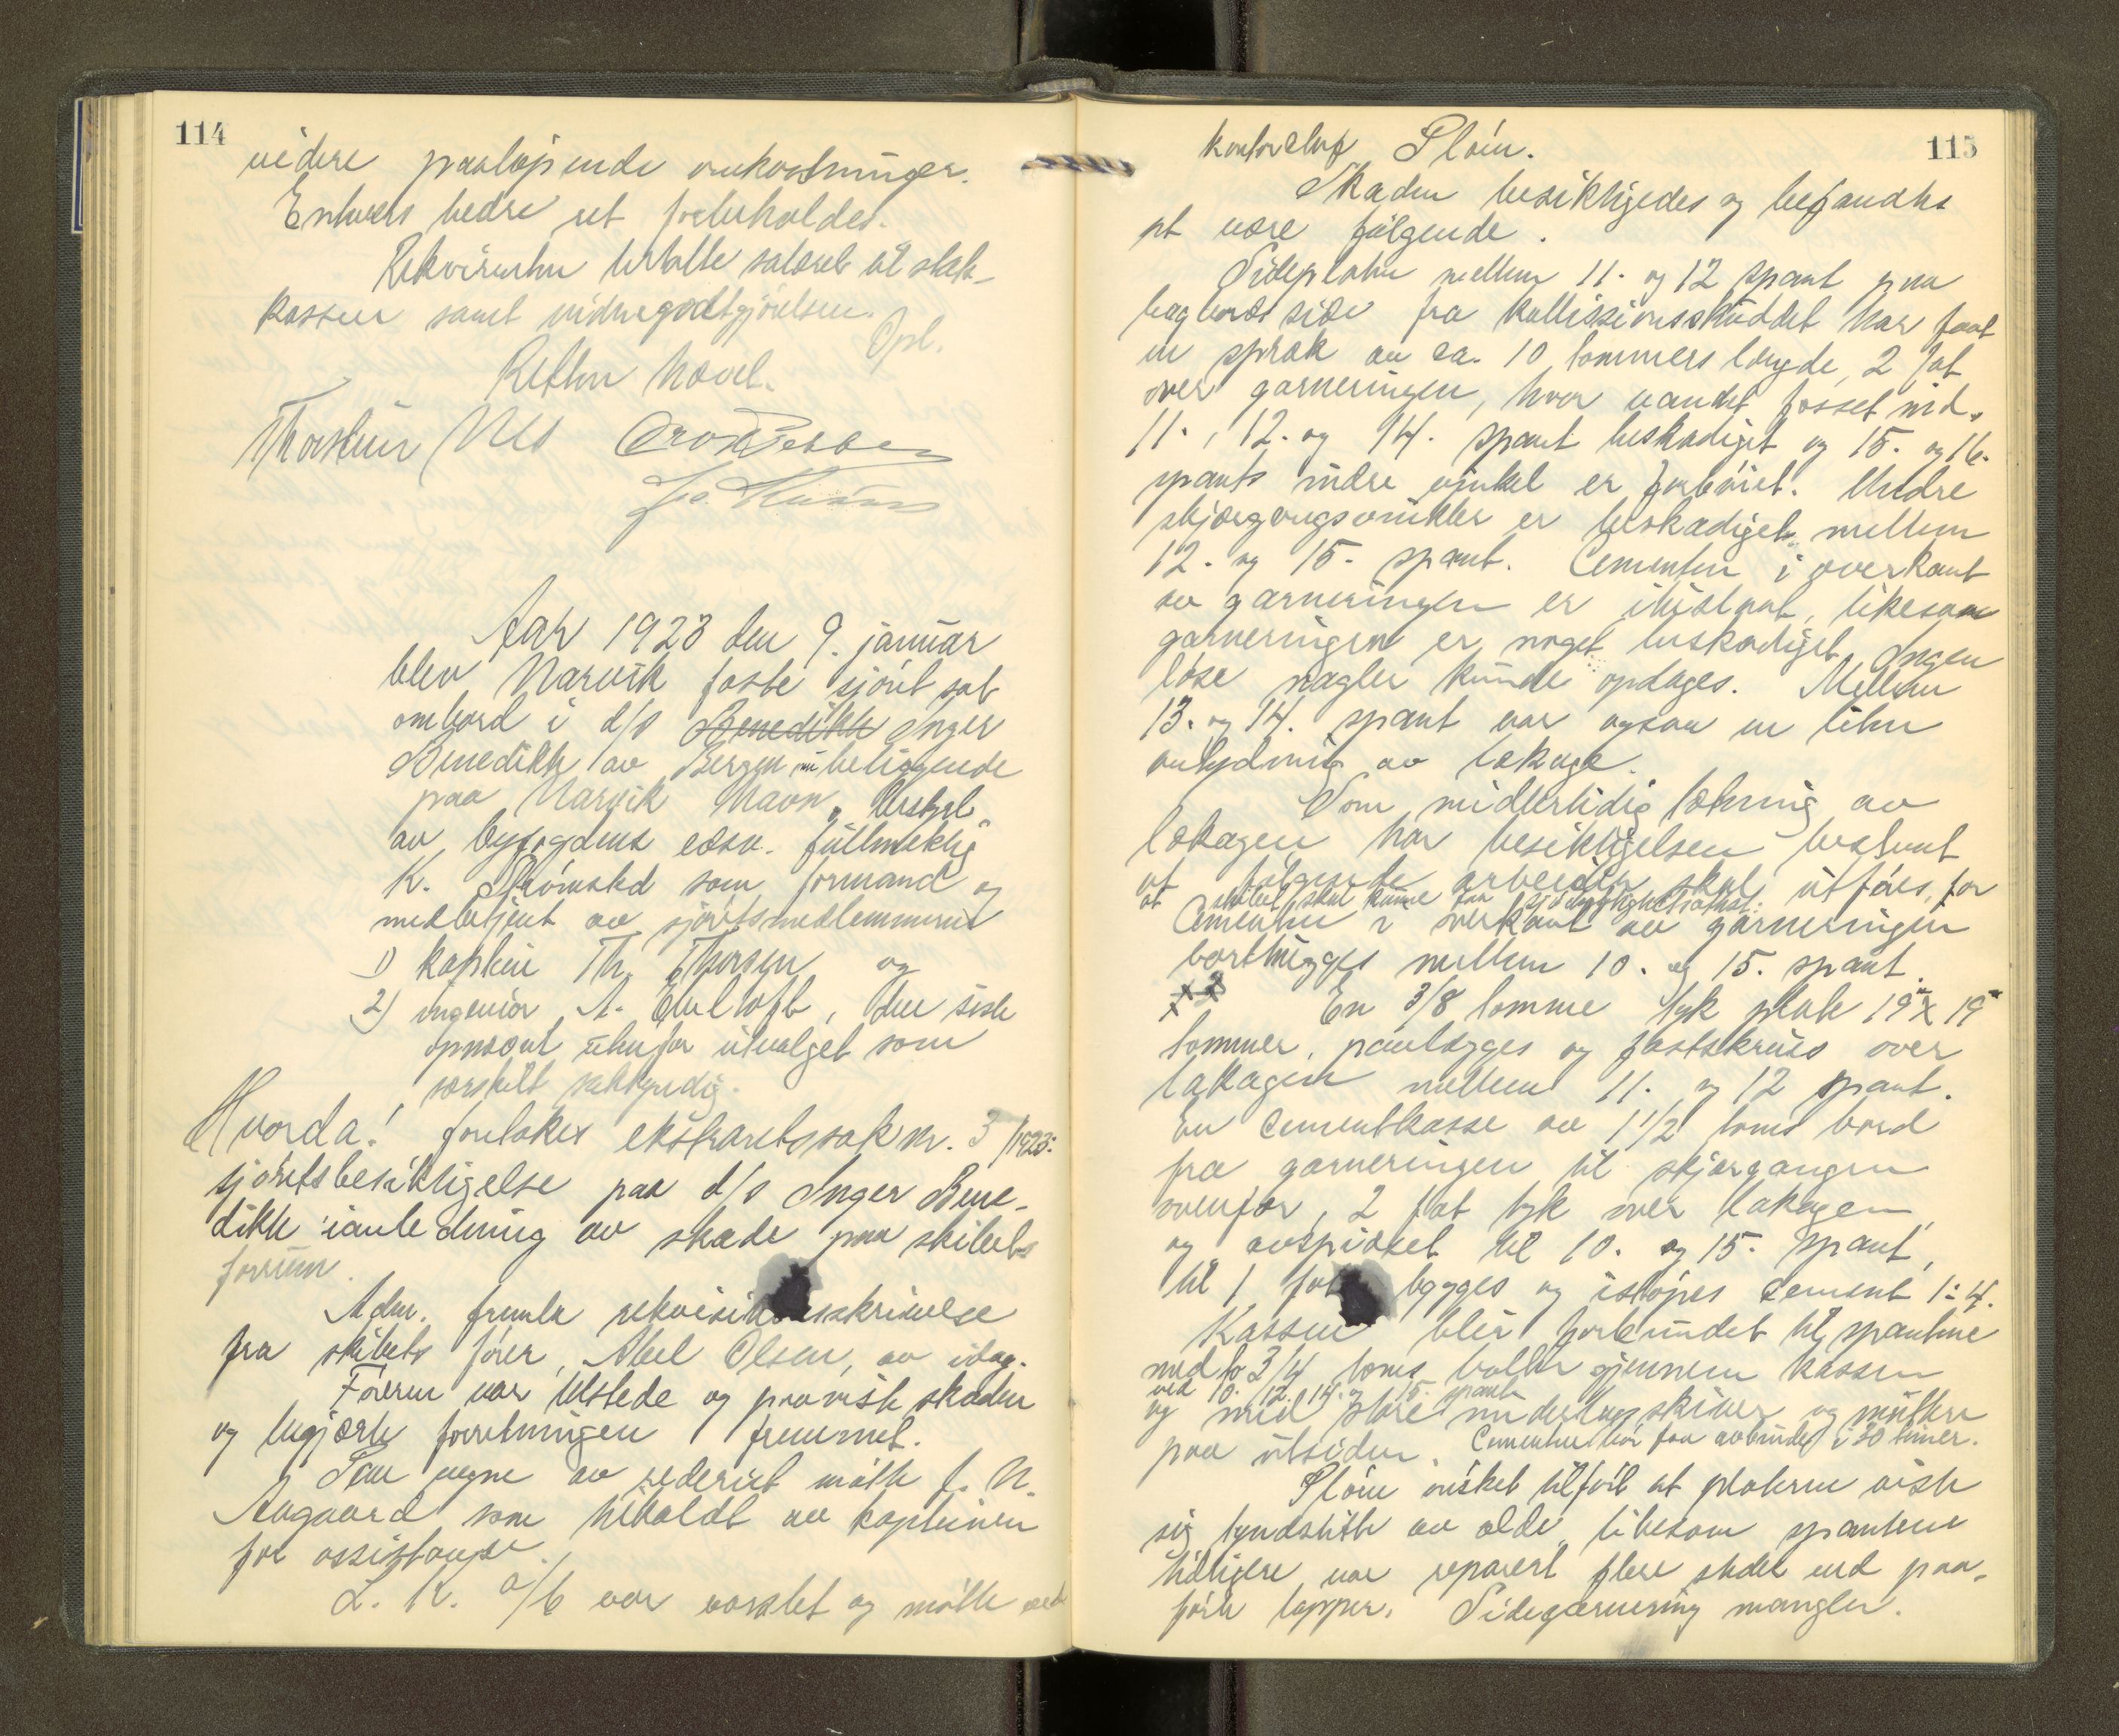 114
videre paaløpende omkostninger.
Enhvers bedre ret forbeholdes.
Rekvirenten betalte salæret til stats-
kassen samt vidnegodtgjørelsen.
Opl.
Retten hævet.
Thorstein
Aar 1923 den 9. januar
blev Narvik faste sjøret sat
ombord i d/s Benedikte Inger
Benedikte av Bergen nu beliggende
paa Narvik havn. Bestyret
av byfogdens edsv. fuldmektig
K. Strømsted som formand og
medbetjent av sjøretsmedlemmerne
1) kaptein Th. Thorsen og
2) ingeniør A. , den siste
opnævnt utenfor utvalget som
særskilt sakkyndig.
Hvorda! foretokes ekstraretssak nr. 3/1923:
sjøretsbesiktigelse paa d/s Inger Bene-
dikte i anledning av skade paa skibets
forrum.
Adm. fremla rekvisitionsskrivelse
fra skibets fører, Abel Olsen, av idag.
Føreren var tilstede og paaviste skaden
og begjærte forretningen fremmet.
Paa vegne av rederiet møtte J. N.
Aagaard som tilkaldt av kapteinen
for assistanse.
L. K. A/B var varslet og møtte ved
115
kontorchef Pløin.
Skaden besiktigedes og befandtes
at være følgende.
Sideplaten mellem 11. og 12 spant paa
bagbords side fra kollissionsskuddet har faat
en spræk av ca. 10 tommers længde, 2 fot
over garneringen, hvor vandet fosset ind.
11., 12. og 14. spant beskadiget og 15. og 16.
spants indre vinkel er forbøiet. Undre
skjærgangsvinkler er beskadiget mellem
12. og 15. spant. Cementen i overkant
av garneringen er ituslaat, likesom
garneringen er noget beskadiget. Ingen
løse nagler kunde opdages. Mellem
13. og 14. spant var ogsaa en liten
antydning av lækage.
Som midlertidig tætning av
lækagen har besiktigelsen bestemt
at følgende arbeider skal utføres, for
at skibet skal kunne faa sjødyktighetsattest:
Cementen i overkant av garneringen
borthugges mellem 10. og 15. spant.
En 3/8 tomme tyk plate 19" x 19"
tommer, paalægges og fastskrues over
lækagen mellem 11. og 12 spant.
En cementkasse av 1 1/2 toms bord
fra garneringen til skjærgangen
ovenfor, 2 fot tyk over lækagen,
og avspidset til 10. og 15. spant,
til 1 fot bygges og istøpes cement 1:4.
Kassen blir forbundet til spantene
med to 3/4 toms bolter gjennem kassen
ved 10. 12. 14. og 15. spant
og med store underlagsskiver og muttere
paa utsiden. Cementen bør faa avbinde i 30 timer.
Pløin ønsket tilført at platerne viste
sig tyndslitte av ælde, likesom spantene
tidligere var reparert flere steder ved paa-
førte lapper. Sidegarnering mangler.